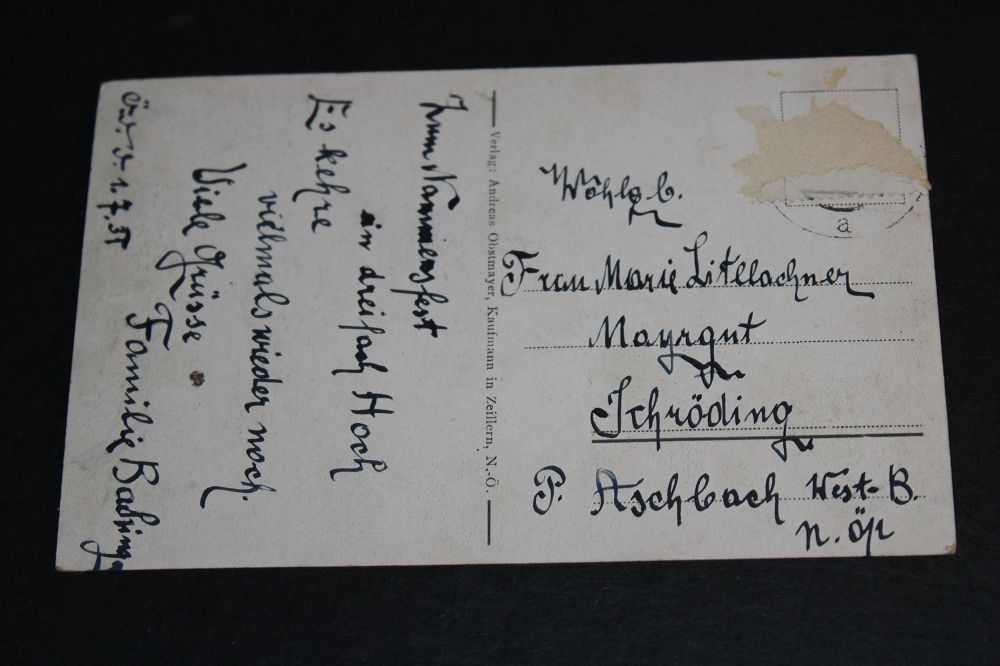 Zum Namensfest
ein dreifach Hoch
Es kehre
vielmals wieder noch.
Viele Grüsse
Familie
1.7.
Verlag: Andreas Obstmayer, Kaufmann in Zeillern, N.-Ö.
a
Wohlg b.
Frau Marie Litzlachner
Mayrgut
Schröding
P. Aschbach West-B.
N. Öst